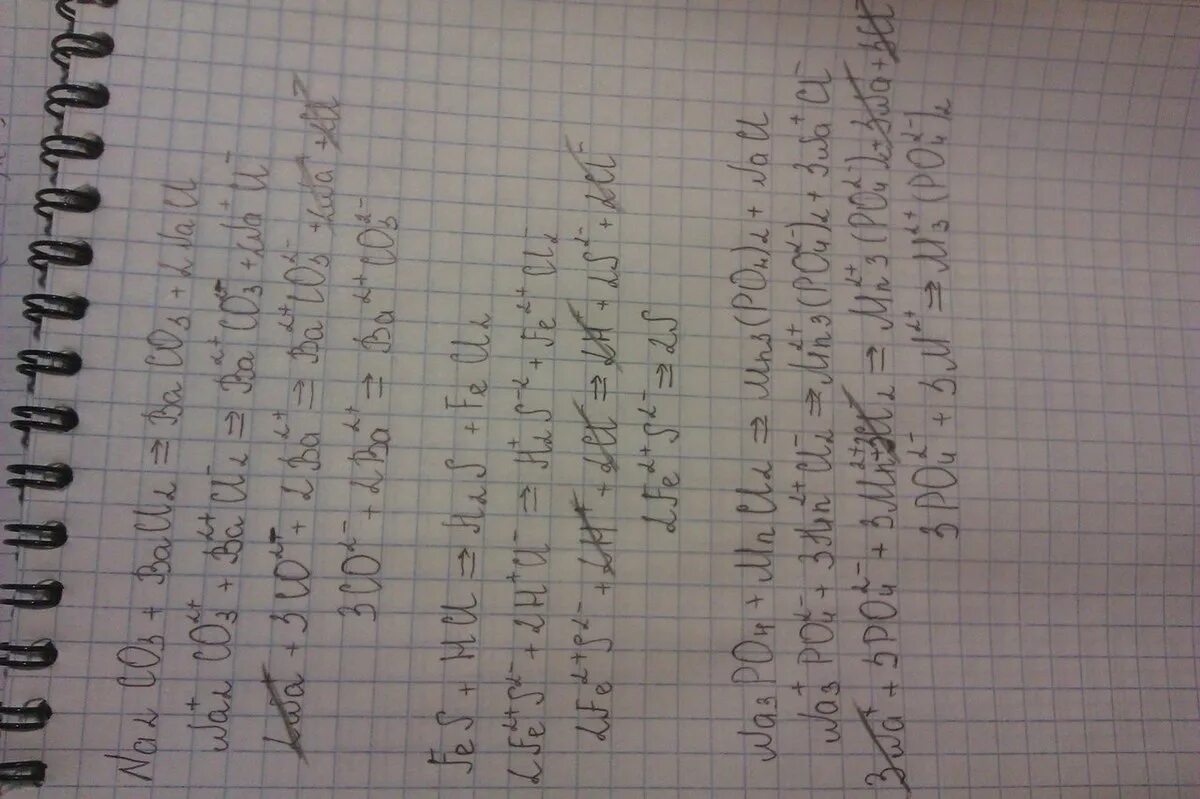 Na2 CO3 + BaCl2 ⇒ BaCO3 + 2NaCl
Na2⁺ CO3²⁺ + Ba²⁺Cl⁻2 ⇒ Ba²⁺CO3²⁻ + 2Na⁺Cl⁻
2Na + 3CO²⁺ + 2Ba²⁺ ⇒ Ba²⁺CO3²⁻ + 2Na⁺ + 2Cl⁻
3CO²⁻ + 2Ba²⁺ ⇒ Ba²⁺CO3²⁻
FeS + HCl ⇒ H2S + FeCl2
2Fe²⁺S²⁻ + 2H⁺Cl⁻ ⇒ H2⁺S⁻² + Fe²⁺Cl2⁻
2Fe²⁺S²⁻ + 2H⁺ + 2Cl ⇒ 2H⁺ + 2S²⁻ + 2Cl⁻
2Fe²⁺S²⁻ ⇒ 2S
Na3PO4 + MnCl2 ⇒ Mn3(PO4)2 + NaCl
Na3⁺PO4²⁻ + 3Mn²⁺Cl⁻2 ⇒ Mn3²⁺(PO4²⁻)2 + 3Na⁺Cl⁻
3Na⁺ + 3PO4²⁻ + 3Mn²⁺ + 3Cl2 ⇒ Mn3²⁺(PO4²⁻)2 + 3Na + 3Cl⁻
3PO4²⁻ + 3M²⁺ ⇒ M3²⁺(PO4²⁻)2